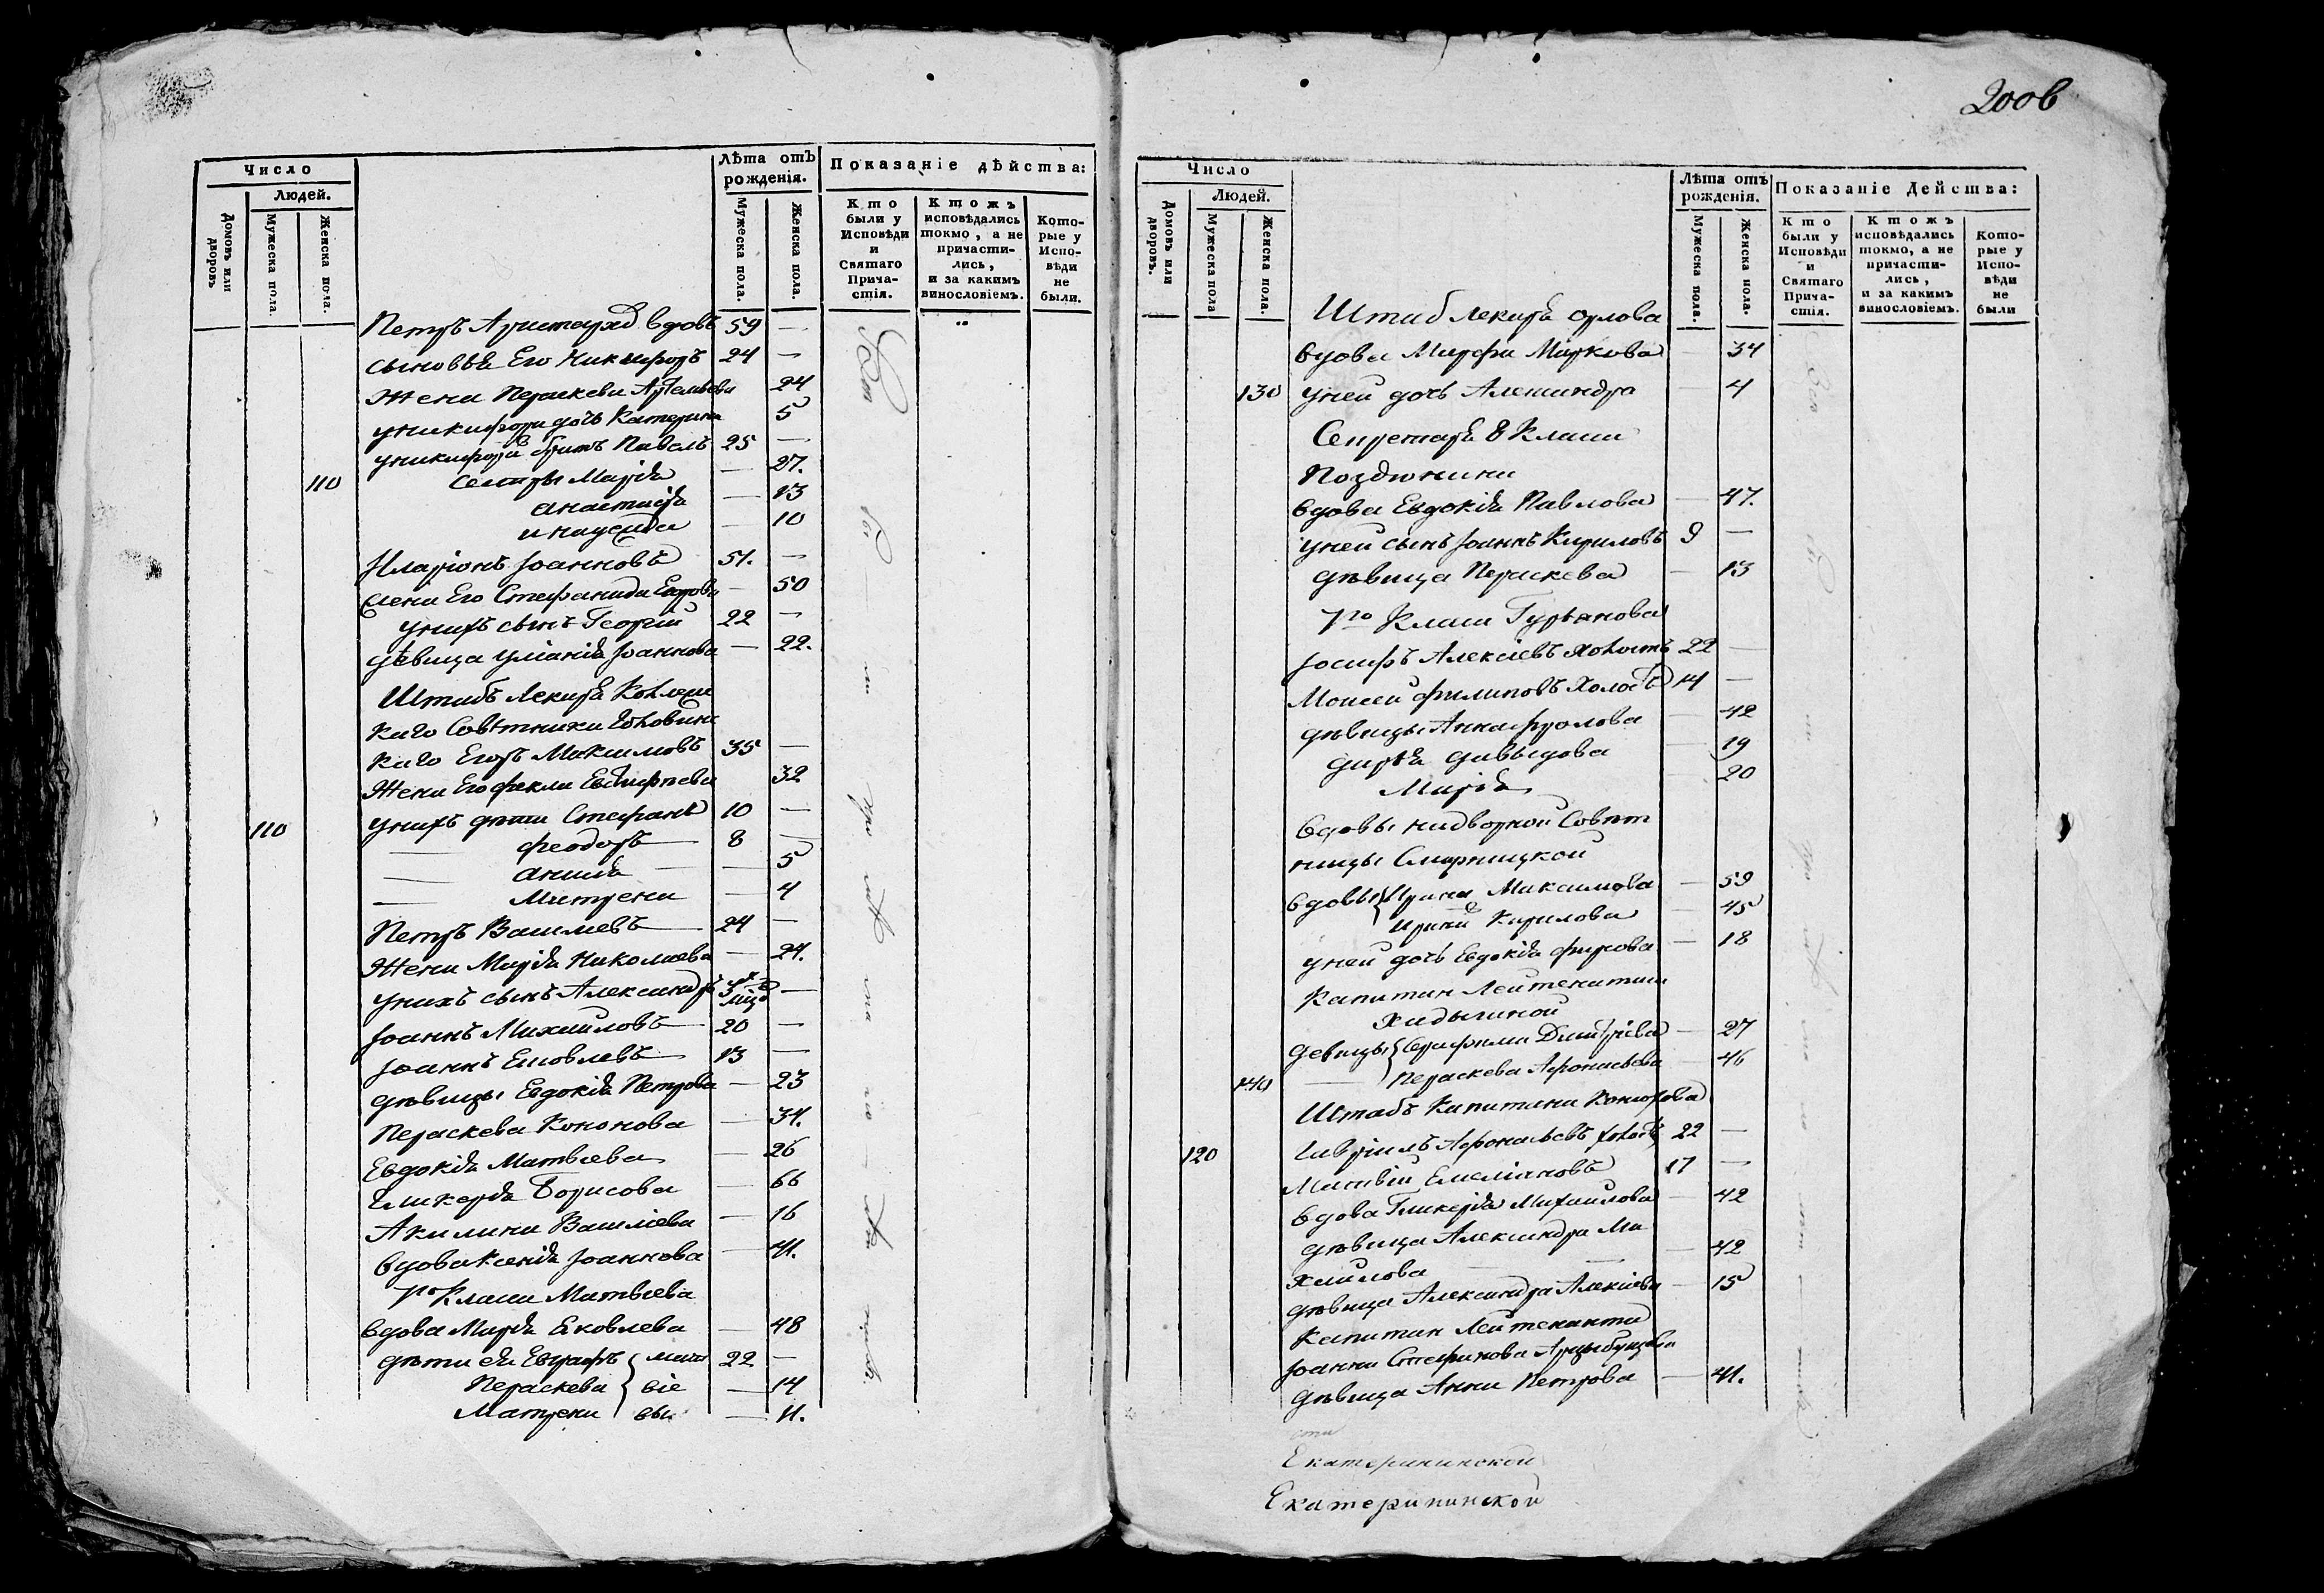 Число
Людей.
Домовъ или дворовъ
Мужеска пола.
Женска пола.
Лѣта отъ рожденія.
Мужеска пола.
Женска пола.
Показаніе дѣйства:
Кто были у Исповѣди и Святаго Прича- стія.
Ктожъ исповѣдались токмо, а не причасти- лись, и за какимъ винословіемъ.
Кото- рые у Испо- вѣди не были.
Петръ вдовъ 59 —
сыновья Его Никифоръ 24 —
Жена Параскева 24
у Никифора дочь Катерина 5
у Никифора братъ Павелъ 25 —
110 сестры Марія — 27.
Анастасія — 13
— 10
Иларіонъ Іоанновъ 51. —
жена Его Стефанида — 50
у нихъ сынъ Георгій 22 —
дѣвица Уліанія Іоаннова — 22.
Штабъ Лекаря Коллеж
каго Совѣтника
каго Егоръ Максимовъ 35 —
Жена Его Фекла 32
110 у нихъ дѣти Стефанъ 10 —
— Феодоръ 8 —
— — 5
— Матрена — 4
Петръ Васильевъ 24 —
Жена Марія Николаева — 24.
у нихъ сынъ Александръ —
Іоаннъ Михайловъ 20 —
Іоаннъ Яковлевъ 13 —
дѣвицы Евдокія Петрова — 23
Параскева Кононова — 34.
Евдокія Матвѣева — 26
Гликерія Борисова — 66
Акилина Василіева — 16
вдова Ксенія Іоаннова — 41.
7го Класа Матвѣева
вдова Марія Яковлева — 48
дѣти ея Евграфъ 22 —
Параскева — 14
Матрена — 11.
2006
Число
Людей.
Домовъ или дворовъ.
Мужеска пола
Женска пола.
Лѣта отъ рожденія.
Мужеска пола.
Женска пола.
Показаніе Действа:
Кто были у Исповѣди и Святаго Прича- стія.
Ктожъ исповѣдались токмо, а не причасти- лись, и за какимъ винословіемъ.
Кото- рые у Испо- вѣди не были
Штаб Лекаря Орлова
вдова Марфа Маркова — 34
130 у ней дочь Александра — 4
Секретаря 8 Класа
Поздюнина
вдова Евдокія Павлова — 47.
у ней сынъ Іоаннъ Кириловъ 9 —
дѣвица Параскева — 13
7го Класа Гурьянова
Іосифъ Алексіевъ холостъ 22 —
Моисей Филиповъ холостъ 14 —
дѣвицы Анна Фролова — 42
Дарья Давыдова — 19
Марія — 20
вдовы надворной Совѣт
ницы Смирницкой
вдовы Ирина Максимова — 59
Ирина Кирилова — 45
у ней дочь Евдокія — 18
Капитан Лейтенатши
Хадыгиной
девицы Серафима Димтріева — 27
140 Параскева Афонасьева — 46
Штабъ Капитана
120 Гавріилъ Афонасьевъ холостъ 22 —
Матвій Емеліановъ 17 —
вдова Гликерія Михаилова — 42
дѣвица Александра Ми
хаилова — 42
дѣвица Александра Алексіева — 15
Капитан Лейтенанта
Іоанна Стефанова Арцыбушева
дѣвица Анна Петрова — 41.
Екатерининской
Екатерининской